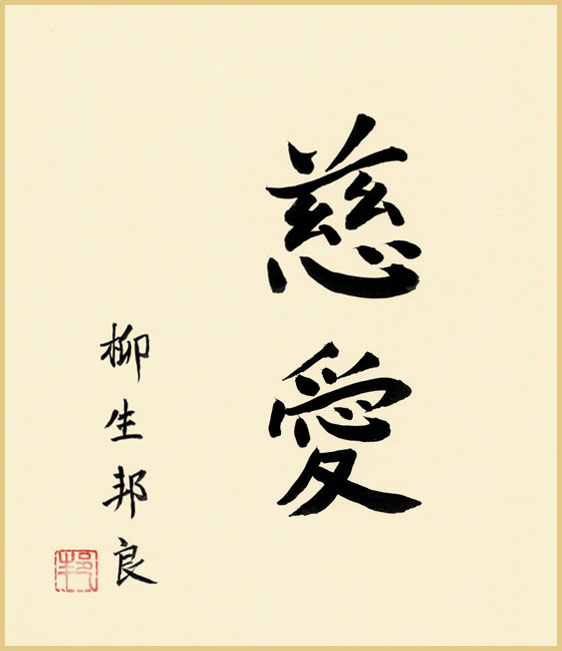 慈愛
柳生邦良